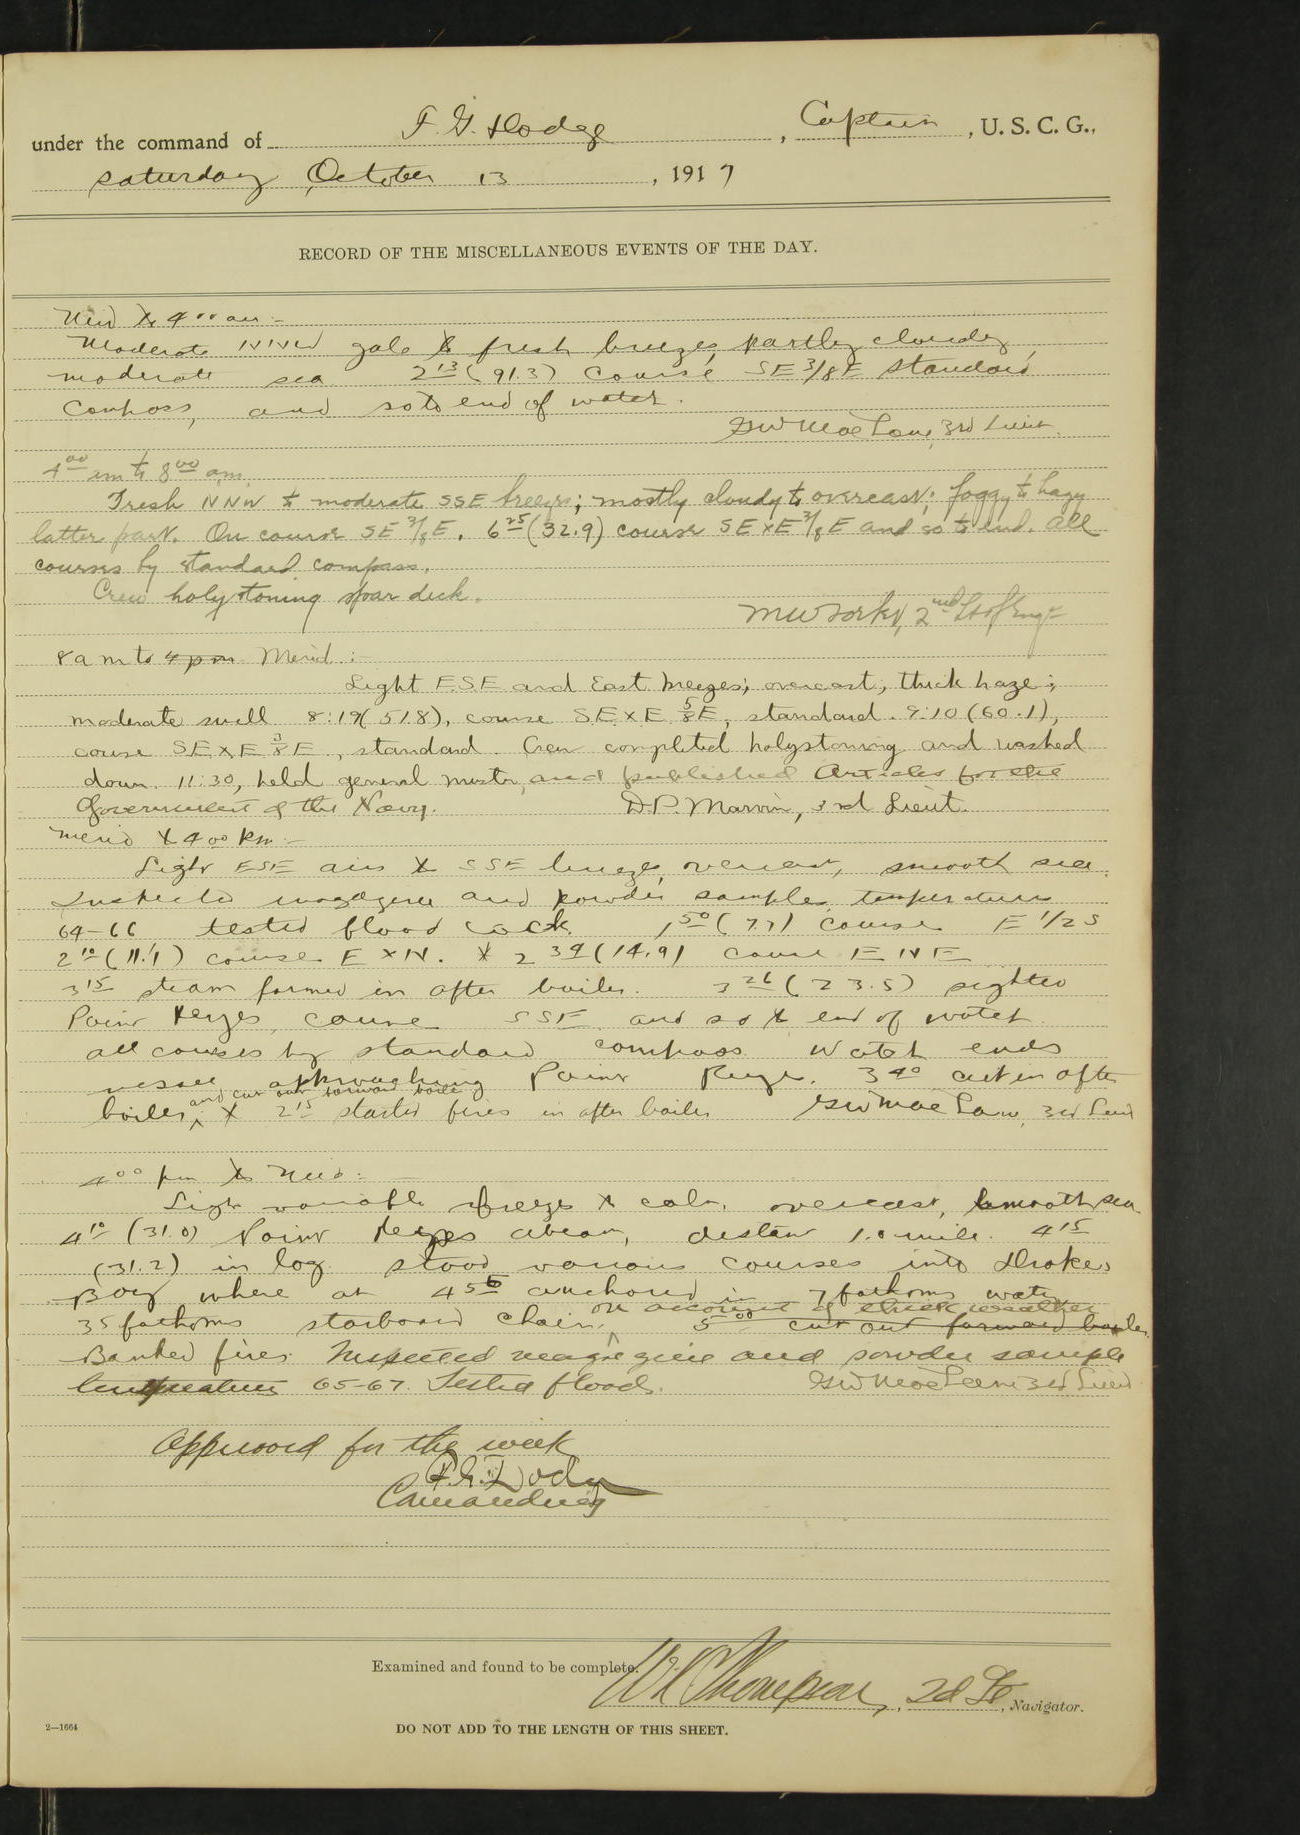 under the command of F. G. Dodge, Captain, U. S. C. G.,
Saturday October 13, 1917
RECORD OF THE MISCELLANEOUS EVENTS OF THE DAY.
Mid to 4 00 am :-
Moderate NNW gale to fresh breeze, partly cloudy,
moderate sea 2 13 (91.3) course SE 3/8 E standard
compass, and so to end of watch.
G W MacLane, 3rd Lieut.
4 00 am to 8 00 a.m.
Fresh NNW to moderate SSE breezes; mostly cloudy to overcast; foggy to hazy
latter part. On course SE 3/8 E. 6 25 (32.9) course SExE 3/8 E and so to end. All
courses by standard compass.
Crew holystoning spar deck.
2nd Lt of Engrs
8 a m to 4 pm Merid :-
Light E.S.E and East breezes; overcast; thick haze;
moderate swell 8:19 (51.8), course SExE 5/8 E, standard. 9:10 (60.1),
course SExE 3/8 E, standard. Crew completed holystoning and washed
down. 11:30, held general muster, and published Articles for the
Government of the Navy. D.P. Marvin, 3rd Lieut.
Merid to 4 00 pm :-
Light ESE airs to SSE breeze, overcast, smooth sea.
Inspected magazine and powder samples temperatures
64-66 tested flood cock. 1 50 (7.7) course E 1/2 S
2 10 (11.1) course ExN. x 2 39 (14.9) course ENE
3 15 steam formed in after boiler. 3 26 (23.5) sighted
Point Reyes, course SSE and so to end of watch.
all courses by standard compass. Watch ends
vessel approaching Point Reyes. 3 40 cut in after
and cut out forward boiler
boiler, x 2 15 started fires in after boiler G W MacLane, 3rd Lieut
4 00 pm to Mid :-
Light variable breeze to calm, overcast, smooth sea.
4 10 (31.0) Point Reyes abeam, distant 1.0 mile. 4 15
(31.2) in log. stood various courses into Drakes
Bay where at 4 56 anchored in 7 fathoms water
on account of thick weather
35 fathoms starboard chain. 5 00 cut out forward boiler.
Banked fires. Inspected magazine and powder sample
temperatures 65-67. Tested floods. G W MacLane 3rd Lieut
Approved for the week
F. G. Dodge
Commanding
Examined and found to be complete. Thompson, 2d Lt, Navigator.
2—1664
DO NOT ADD TO THE LENGTH OF THIS SHEET.